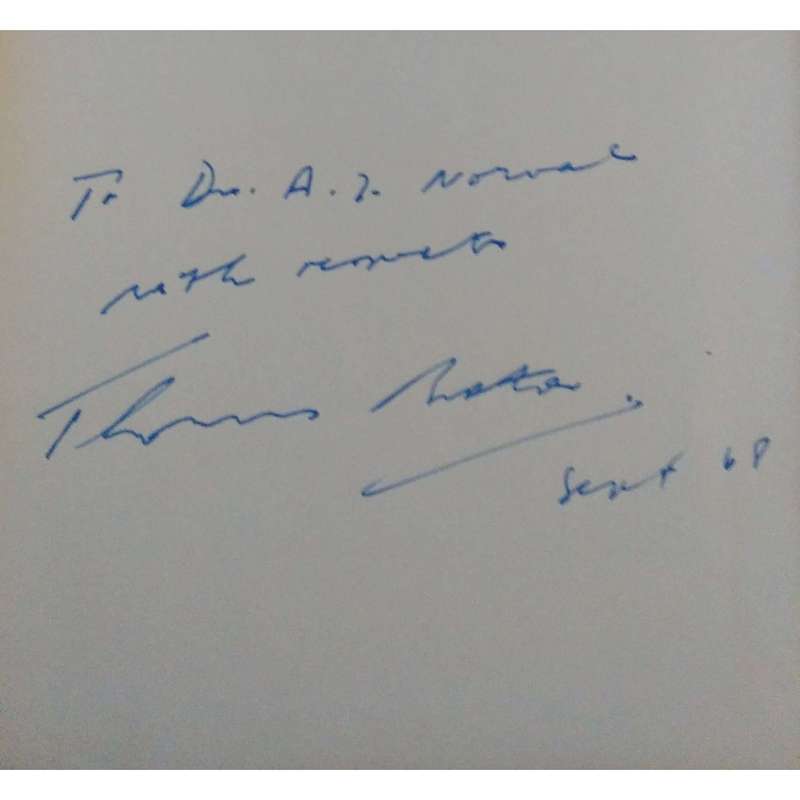 To Dr. A. J. Norval
with respects
Thomas Bata.
Sept 68